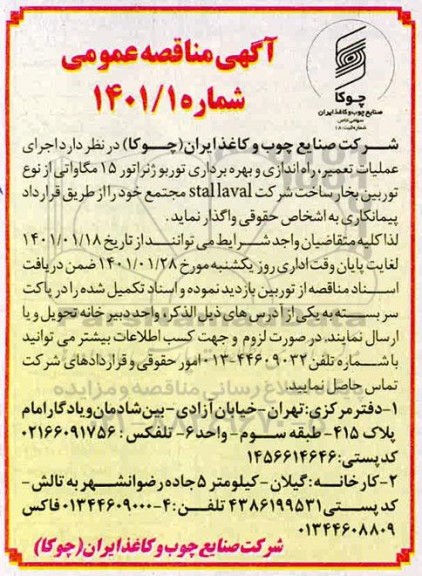 آگهی مناقصه عمومی
شماره ۱۴۰۱/۱
چوکا
صنایع چوب و کاغذ ایران
سهامی خاص
شرکت صنایع چوب و کاغذ ایران (چوکا) در نظر دارد اجرای
عملیات تعمیر، راه اندازی و بهره برداری توربو ژنراتور ۱۵ مگاواتی از نوع
توربین بخار ساخت شرکت stal laval مجتمع خود را از طریق قرارداد
پیمانکاری به اشخاص حقوقی واگذار نماید.
لذا کلیه متقاضیان واجد شرایط می توانند از تاریخ ۱۴۰۱/۰۱/۱۸
لغایت پایان وقت اداری روز یکشنبه مورخ ۱۴۰۱/۰۱/۲۸ ضمن دریافت
اسناد مناقصه از توربین بازدید نموده و اسناد تکمیل شده را در پاکت
سر بسته به یکی از آدرس های ذیل الذکر، واحد دبیر خانه تحویل و یا
ارسال نمایند. در صورت لزوم و جهت کسب اطلاعات بیشتر می توانید
با شماره تلفن ۴۴۶۰۹۰۳۲-۰۱۳ امور حقوقی و قراردادهای شرکت
تماس حاصل نمایید.
۱-دفتر مرکزی: تهران -خیابان آزادی -بین شادمان و یادگار امام
پلاک ۴۱۵- طبقه سوم- واحد۶- تلفکس : ۰۲۱۶۶۰۹۱۷۵۶
کدپستی: ۱۴۵۶۶۱۴۶۴۶
۲-کارخانه: گیلان-کیلومتر ۵ جاده رضوانشهر به تالش-
کد پستی ۴۳۸۶۱۹۹۵۳۱ تلفن: ۴-۰۱۳۴۴۶۰۹۰۰۰ فاکس
۰۱۳۴۴۶۰۸۸۰۹
شرکت صنایع چوب و کاغذ ایران (چوکا)